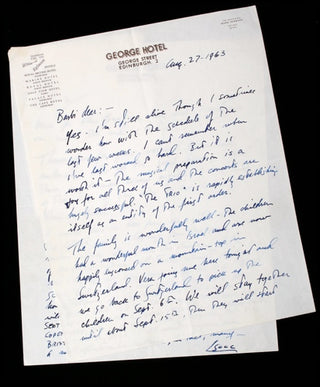 GEORGE HOTEL
GEORGE STREET
EDINBURGH, 2
Aug. 27 - 1963
Barbi dear: —
Yes - I'm still alive though I sometimes
wonder how with the schedule of the
last few weeks. I can't remember when
I've last worked so hard. But it is
worth it - the musical preparation is a
joy for all three of us and the concerts are
hugely successful. The "Trio" is rapidly establishing
itself as an entity of the first order.
The family is wonderfully well - the children
had a wonderful month in Israel and are now
happily ensconced on a mountain-top in
Switzerland. Vera joins me here tonight and
we go back to Switzerland to pick up the
children on Sept. 6th. We will stay together
until about Sept. 15th. Then they will start